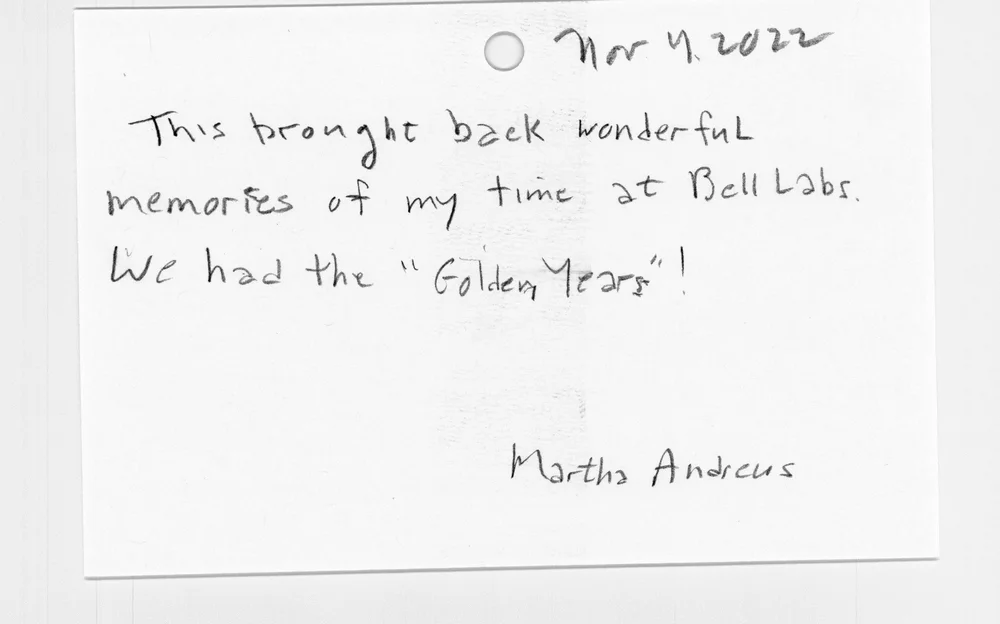 Nov 4, 2022
This brought back wonderful
memories of my time at Bell Labs.
We had the "Golden Years"!
Martha Andrews